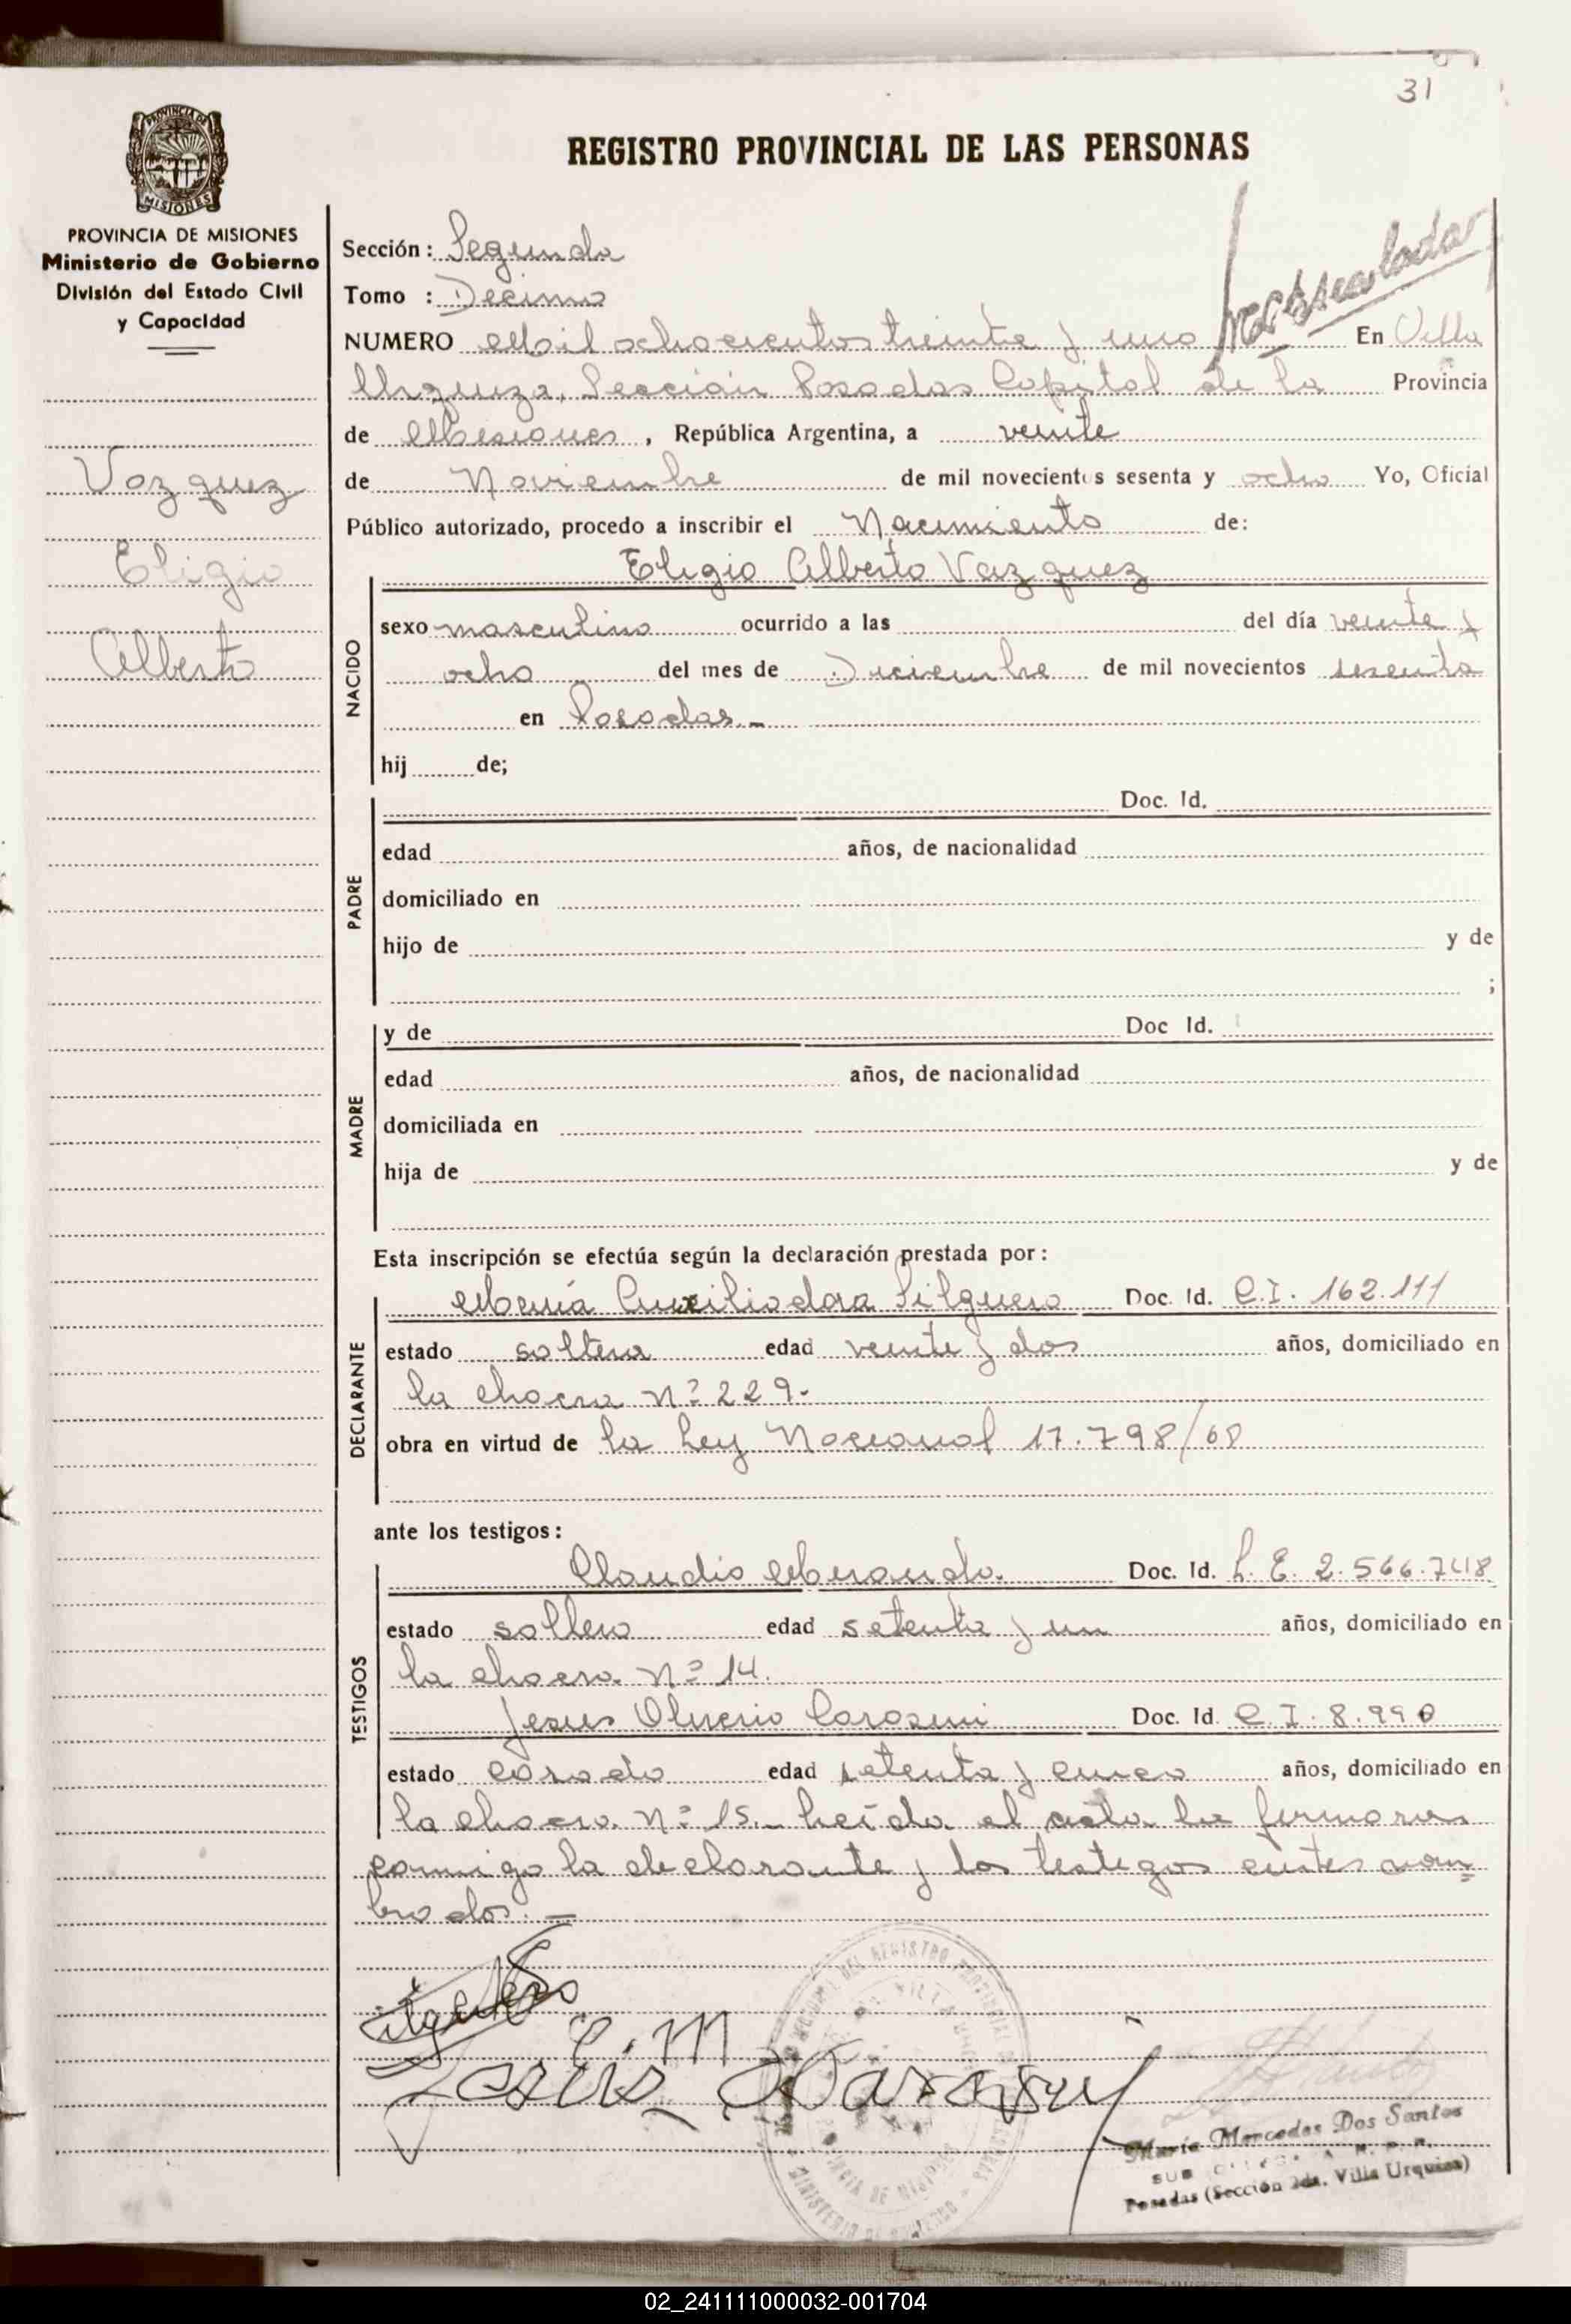 31
PROVINCIA DE
MISIONES
REGISTRO PROVINCIAL DE LAS PERSONAS
PROVINCIA DE MISIONES
Ministerio de Gobierno
División del Estado Civil
y Capacidad
Vazquez
Eligio
Alberto
Sección: Segunda
Tomo : Decimo
NUMERO Mil ochocientos treinta y uno En Villa
Urquiza, Sección Posadas Capital de la Provincia
de Misiones, República Argentina, a veinte
de Noviembre de mil novecientos sesenta y ocho Yo, Oficial
Público autorizado, procedo a inscribir el Nacimiento de:
Eligio Alberto Vazquez
NACIDO
sexo masculino ocurrido a las del día veinte y
ocho del mes de Diciembre de mil novecientos sesenta
en Posadas.-
hij de;
PADRE
Doc. Id.
edad años, de nacionalidad
domiciliado en
hijo de y de
;
MADRE
y de Doc Id.
edad años, de nacionalidad
domiciliada en
hija de y de
Esta inscripción se efectúa según la declaración prestada por:
DECLARANTE
María Auxiliadora Silguero Doc. Id. C.I. 162.111
estado soltera edad veinte y dos años, domiciliado en
la chacra Nº 229.
obra en virtud de la Ley Nacional 17.798/68
ante los testigos:
TESTIGOS
Claudio Miranda. Doc. Id. L. E. 2.566.748
estado soltero edad setenta y un años, domiciliado en
la chacra Nº 14.
Jesus Oliverio Doc. Id. C.I. 8.990
estado casado edad setenta y cinco años, domiciliado en
la chacra Nº 15.- Leída el acta la firmaron
conmigo la declarante y los testigos antes nom=
brados.-
C. M
Jesus
María Mercedes Dos Santos
Posadas (Sección 2da. Villa Urquiza)
02_241111000032-001704